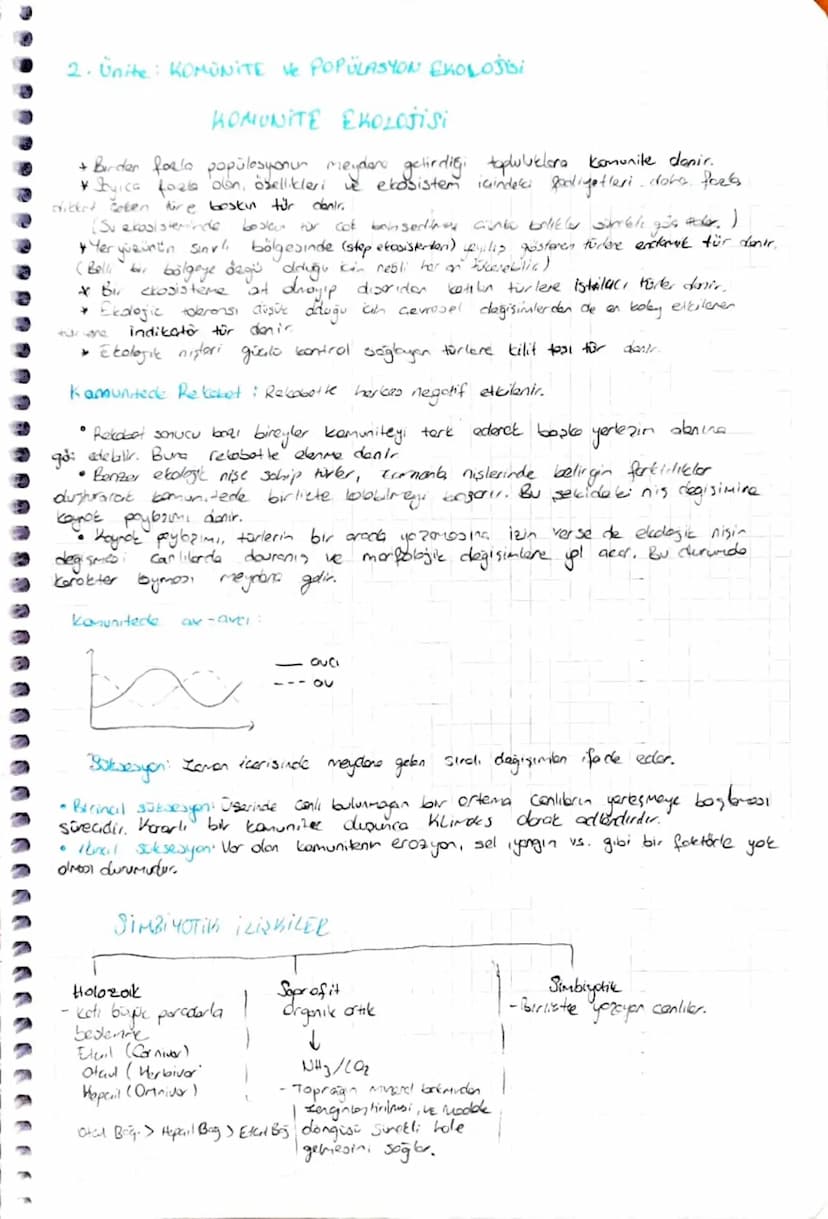 2. Ünite: KOMÜNİTE ve POPÜLASYON EKOLOJİSİ
KOMUNİTE EKOLOJİSİ
+ Birden fazla popülasyonun meydana getirdiği topluluklara komunite denir.
* Sayıca fazla olan, özellikleri ve ekosistem içindeki faaliyetleri daha fazla
dikkat çeken türe baskın tür denir.
(Su ekosisteminde baskın tür çok
* Yer yüzünün sınırlı bölgesinde (step ekosistemleri) yayılış gösteren türlere endemik tür denir.
(Belli bir bölgeye özgü olduğu için nesli her an tükenebilir.)
* Bir ekosisteme ait olmayıp dışarıdan katılan türlere istilacı türler denir.
* Ekolojik toleransı düşük olduğu için çevresel değişimlerden de en kolay etkilenen
türlere indikatör tür denir
* Ekolojik nişleri güçlü kontrol sağlayan türlere kilit taşı tür denir.
Komunitede Rekabet : Rekabette herkes negatif etkilenir.
• Rekabet sonucu bazı bireyler komuniteyi terk ederek başka yerleşim alanına
göç edebilir. Buna rekabette elenme denir
• Benzer ekolojik nişe sahip türler, zamanla nişlerinde belirgin farklılıklar
oluşturarak komunitede birlikte kalabilmeyi başarır. Bu şekildeki niş değişimine
kaynak paylaşımı denir.
• Kaynak paylaşımı, türlerin bir arada yaşamasına izin verse de ekolojik nişin
değişmesi canlılarda davranış ve morfolojik değişimlere yol açar. Bu durumda
karakter kayması meydana gelir.
Komunitede av-avcı :
— avcı
--- av
Süksesyon: Zaman içerisinde meydana gelen sıralı değişimleri ifade eder.
• Birincil süksesyon: Üzerinde canlı bulunmayan bir ortama canlıların yerleşmeye başlaması
sürecidir. Kararlı bir komunite oluşunca Klimaks olarak adlandırılır.
• İkincil süksesyon: Var olan komunitenin erozyon, sel, yangın vs. gibi bir faktörle yok
olması durumudur.
SİMBİYOTİK İLİŞKİLER
Holozoik
- Katı büyük parçalarla
beslenme
Etçil (Carnivor)
Otçul (Herbivor)
Hepçil (Omnivor)
Otçul Bağ. > Hepçil Bağ > Etçil Bağ
Saprofit
Organik artık
↓
NH3/CO2
- Toprağın mineral bakımından
zenginleştirilmesi, ve madde
döngüsü sürekli hale
gelmesini sağlar.
Simbiyotik
- Birlikte yaşayan canlılar.